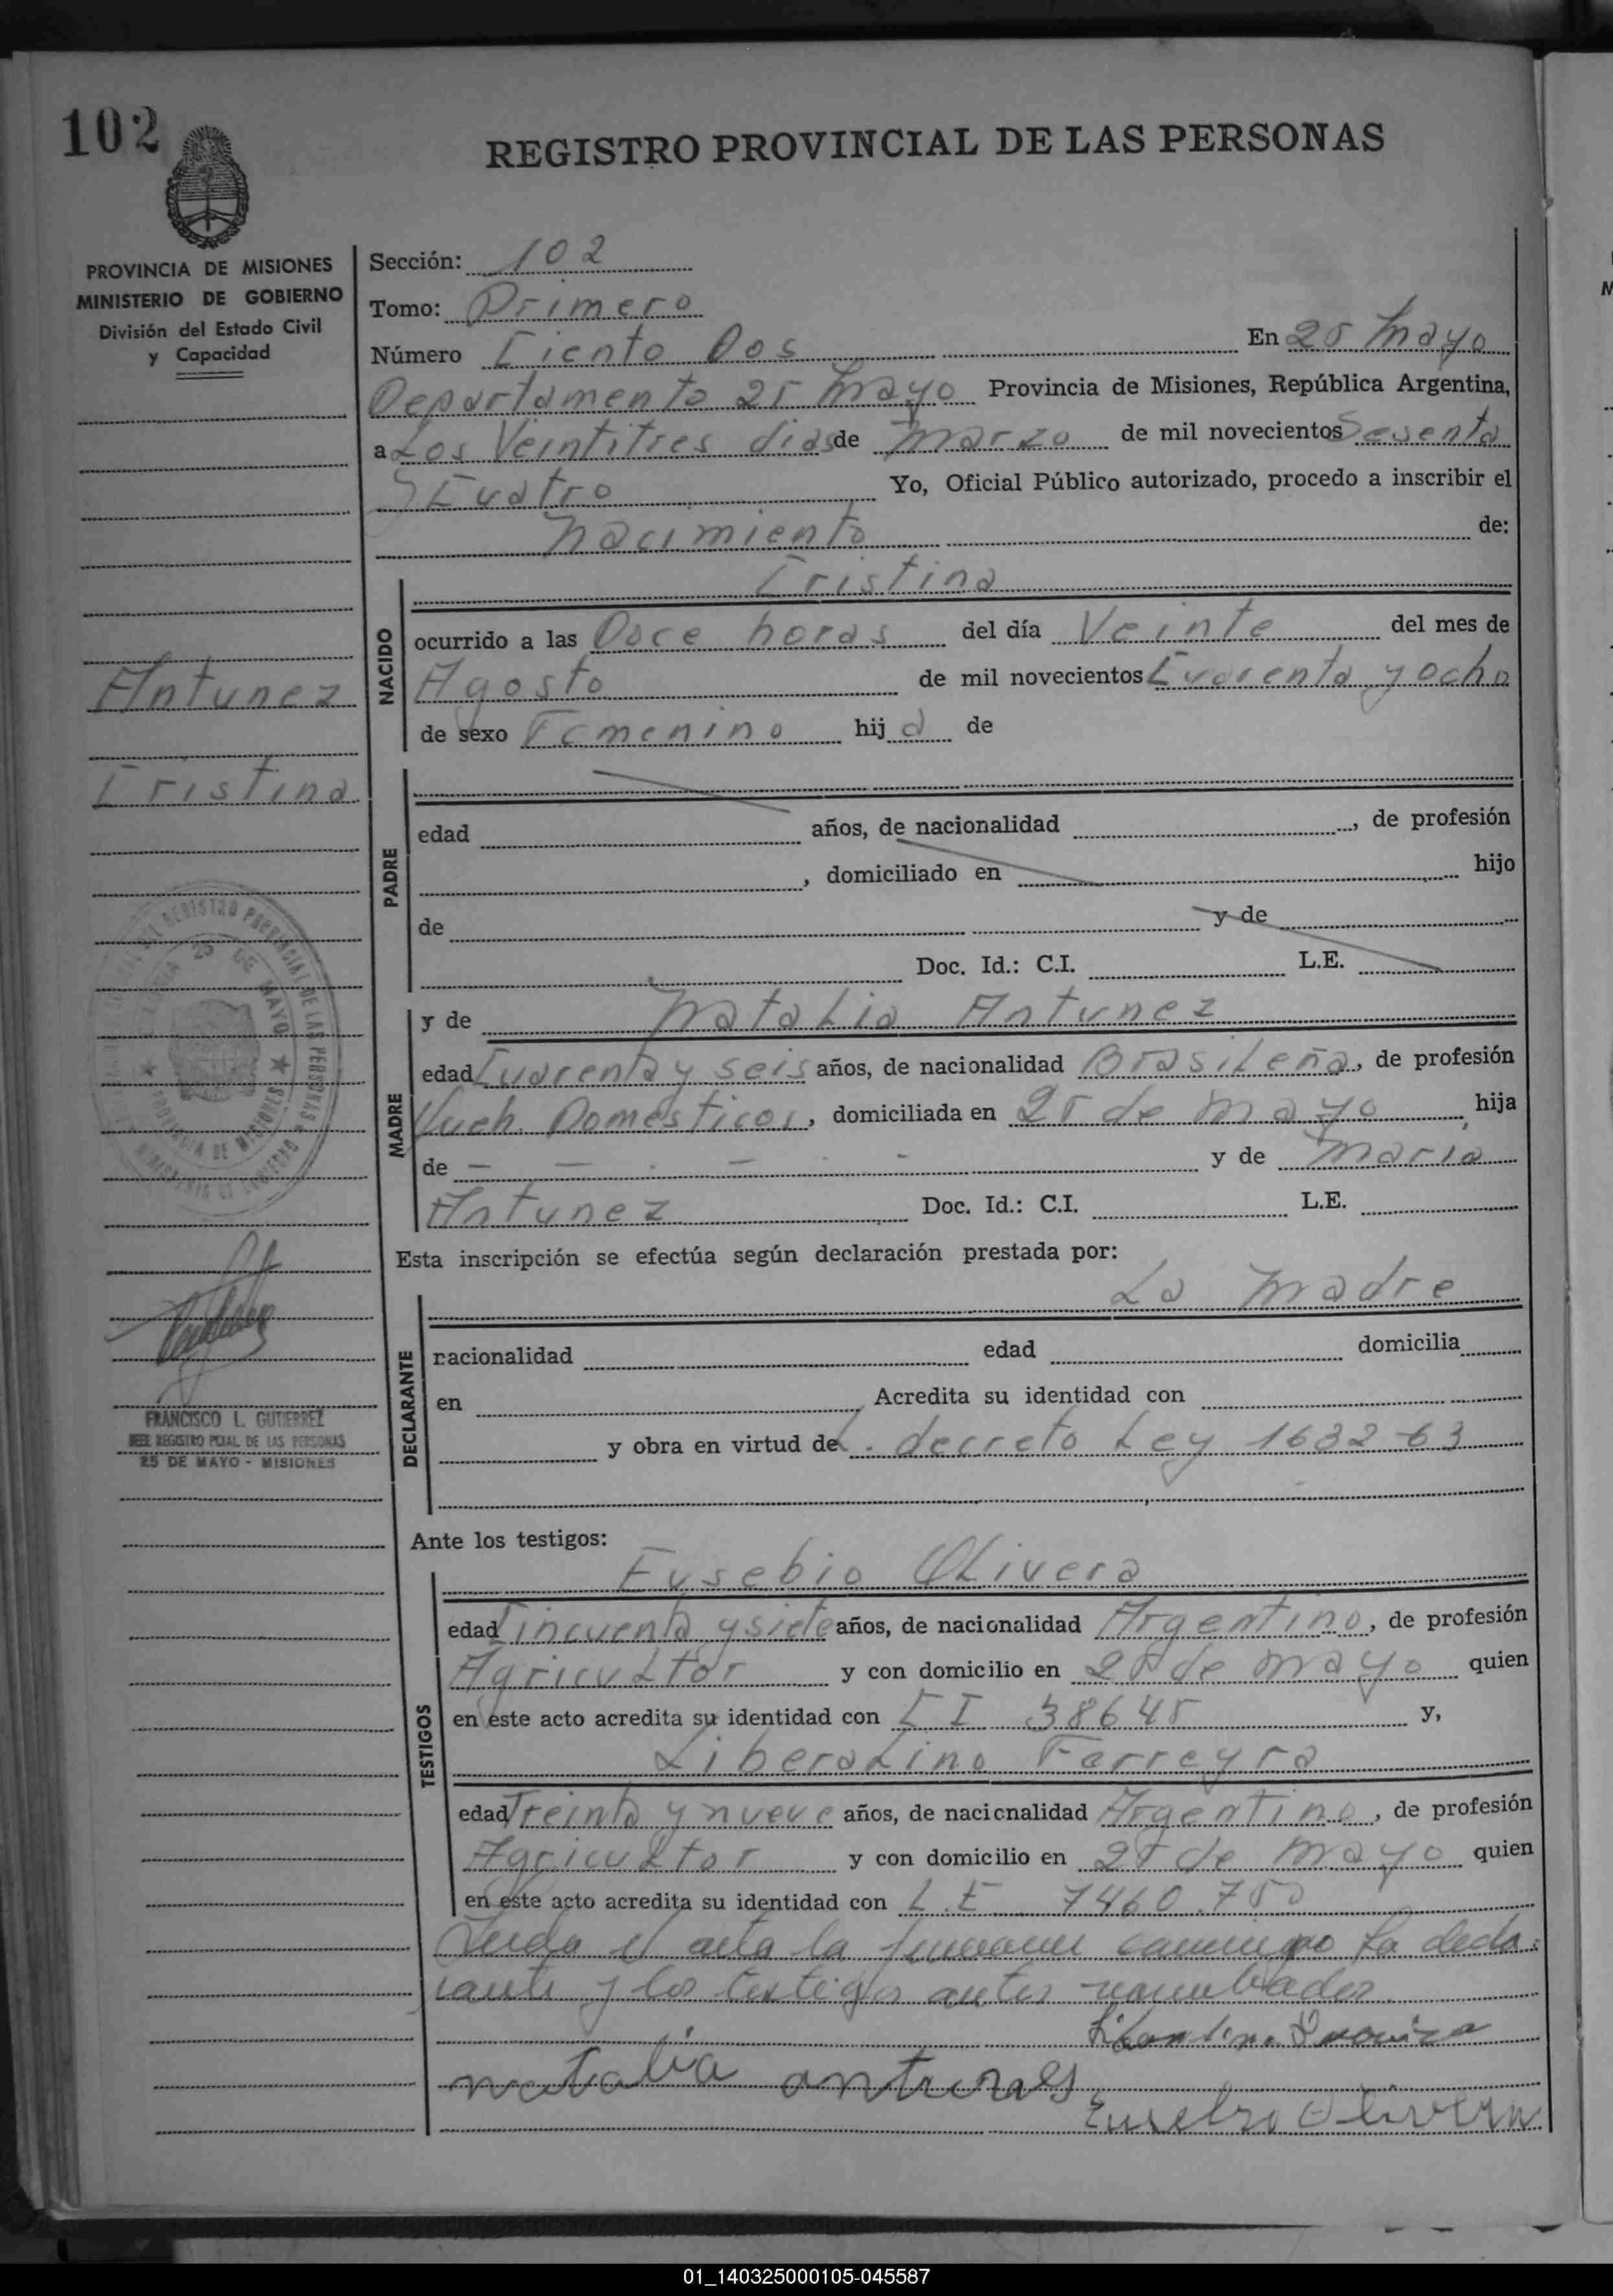 102
REGISTRO PROVINCIAL DE LAS PERSONAS
PROVINCIA DE MISIONES
MINISTERIO DE GOBIERNO
División del Estado Civil
y Capacidad
Sección: 102
Tomo: Primero
Número Ciento Dos En 25 Mayo
Departamento 25 Mayo Provincia de Misiones, República Argentina,
a Los Veintitres dias de Marzo de mil novecientos Sesenta
y Cuatro Yo, Oficial Público autorizado, procedo a inscribir el
Nacimiento de:
NACIDO
Cristina
ocurrido a las Doce horas del día Veinte del mes de
Agosto de mil novecientos Cuarenta y ocho
de sexo Femenino hija de
Antunez
Cristina
PADRE
edad años, de nacionalidad , de profesión
, domiciliado en hijo
de y de
Doc. Id.: C.I. L.E.
MADRE
y de Natalia Antunez
edad Cuarenta y seis años, de nacionalidad Brasileña, de profesión
Queh. Domesticos, domiciliada en 25 de Mayo, hija
de - - - - - y de Maria
Antunez Doc. Id.: C.I. L.E.
Esta inscripción se efectúa según declaración prestada por:
DECLARANTE
La Madre
nacionalidad edad domicilia
en Acredita su identidad con
y obra en virtud de L. decreto Ley 1632-63
FRANCISCO L. GUTIERREZ
JEFE REGISTRO PCIAL DE LAS PERSONAS
25 DE MAYO - MISIONES
Ante los testigos:
TESTIGOS
Eusebio Olivera
edad Cincuenta y siete años, de nacionalidad Argentino, de profesión
Agricultor y con domicilio en 25 de Mayo quien
en este acto acredita su identidad con C I 38645 y,
Liberalino Ferreyra
edad Treinta y nueve años, de nacionalidad Argentino, de profesión
Agricultor y con domicilio en 25 de Mayo quien
en este acto acredita su identidad con L.E. 7460.750
Leida el acta la firmaron conmigo la decla-
rante y los testigos antes nombrados
natalia antunes
Eusebio Olivera
01_140325000105-045587